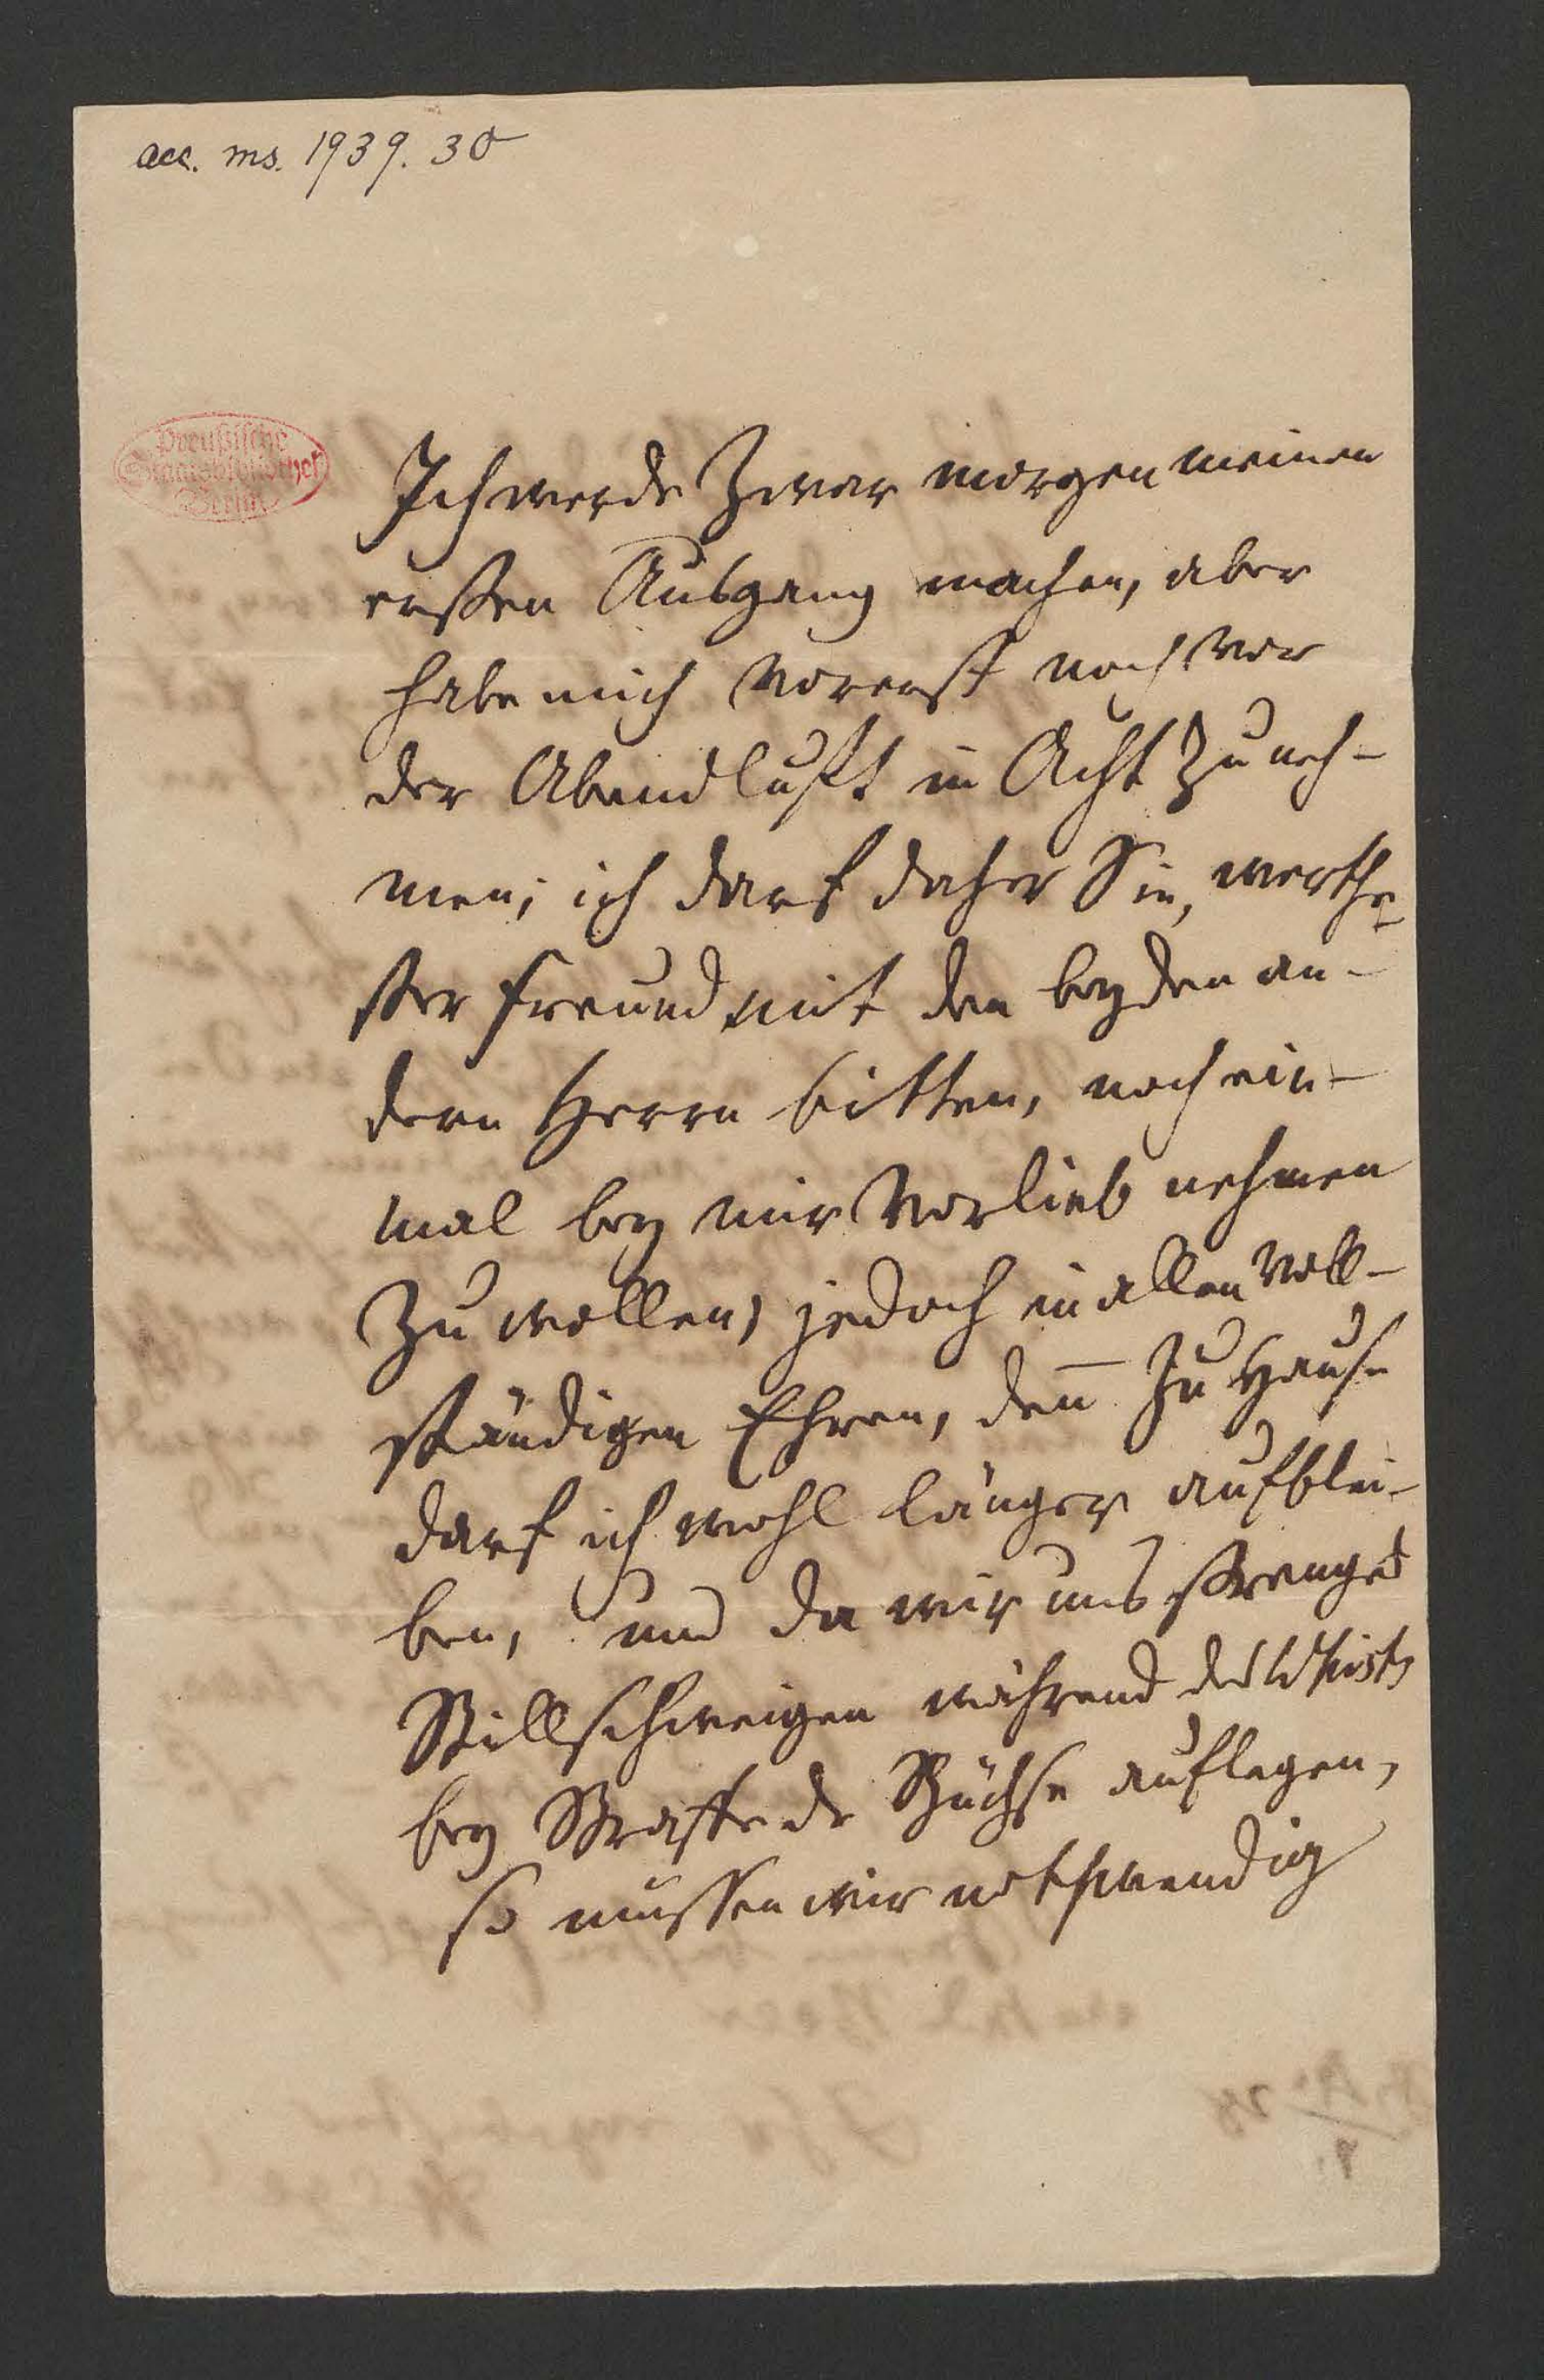 acc. ms. 1939. 30
Preußische
Staatsbibliothek
Berlin
Ich werde zwar morgen meinen
ersten Ausgang machen, aber
habe mich vorerst noch vor
der Abendluft in Acht zu neh-
men; ich darf daher Sie, werthe-
ster Freund mit den beyden an-
dern Herrn bitten, noch ein-
mal bey mir vorlieb nehmen
zu wollen, jedoch in allen voll-
ständigen Ehren, den̄ zu Hause
darf ich wohl länger aufblei-
ben, und da wir uns strenges
Stillschweigen während des Whists
bey Straffe de Büchse auflegen,
so müssen wir nothwendig